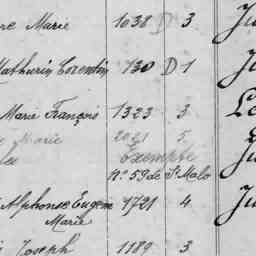 re Marie 1638 D 3 Ju
Mathurin Corentin 730 D 1 Ju
Marie François 1323 3 Le
Marie 2021 5
Exempte
N° 59 de St Malo
Alphonse Eugène 1721 4 Ju
Marie
Joseph 1189 3